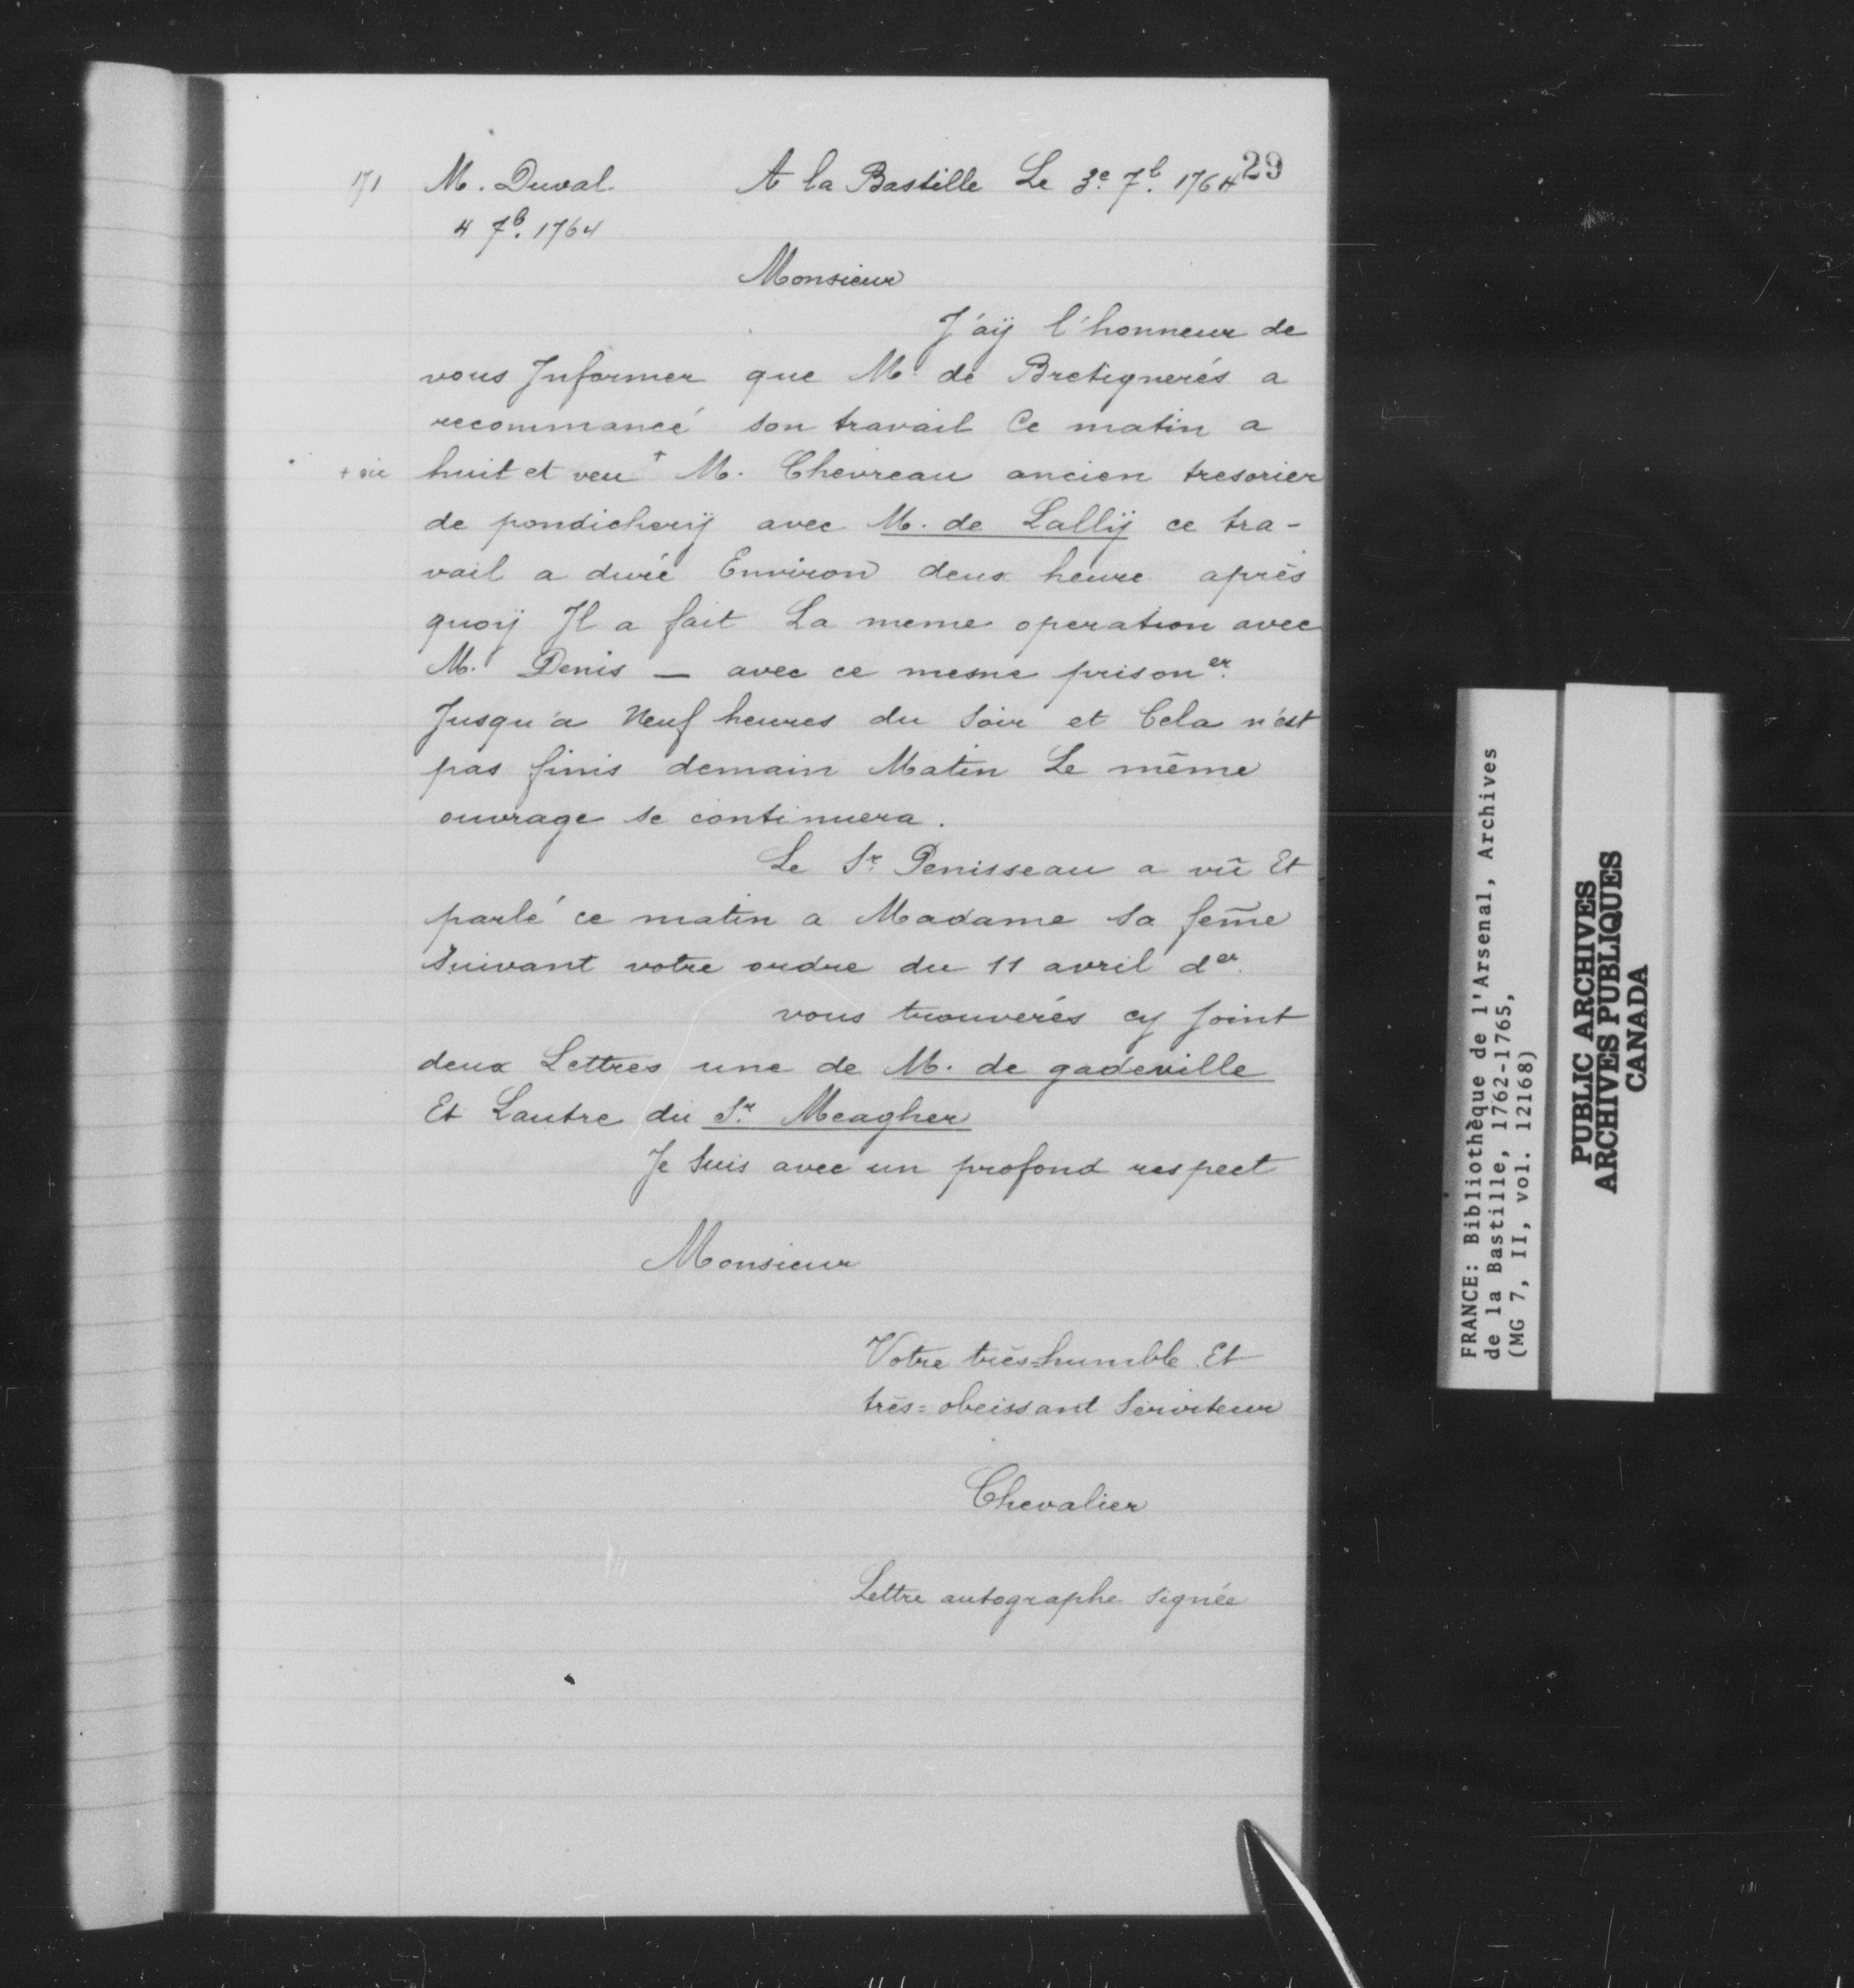 29
171 M. Duval. A la Bastille Le 3e. 7b. 1764
4 7b. 1764
Monsieur
J'aÿ l'honneur de
vous Informer que Mr. de Bretignerés a
recommancé son travail Ce matin a
+ sic huit et veu + M. Chevreau ancien tresorier
de pondicherÿ avec M. de Lallÿ ce tra-
vail a duré Environ deux heure après
quoÿ Il a fait La meme operation avec
M. Denis — avec ce mesme prisoner.
Jusqu'a Neuf heures du Soir et Cela n'est
pas finis demain Matin Le même
ouvrage se continuera.
Le Sr. Penisseau a vû Et
parlé ce matin a Madame sa fem̃e
Suivant votre ordre du 11 avril der.
vous trouverés cy Joint
deux Lettres une de M. de gadeville
Et Lautre du Sr. Meagher
Je Suis avec un profond respect
Monsieur
Votre très=humble Et
très=obeissant Serviteur
Chevalier
Lettre autographe signée
FRANCE: Bibliothèque de l'Arsenal, Archives
de la Bastille, 1762-1765,
(MG 7, II, vol. 12168)
PUBLIC ARCHIVES
ARCHIVES PUBLIQUES
CANADA